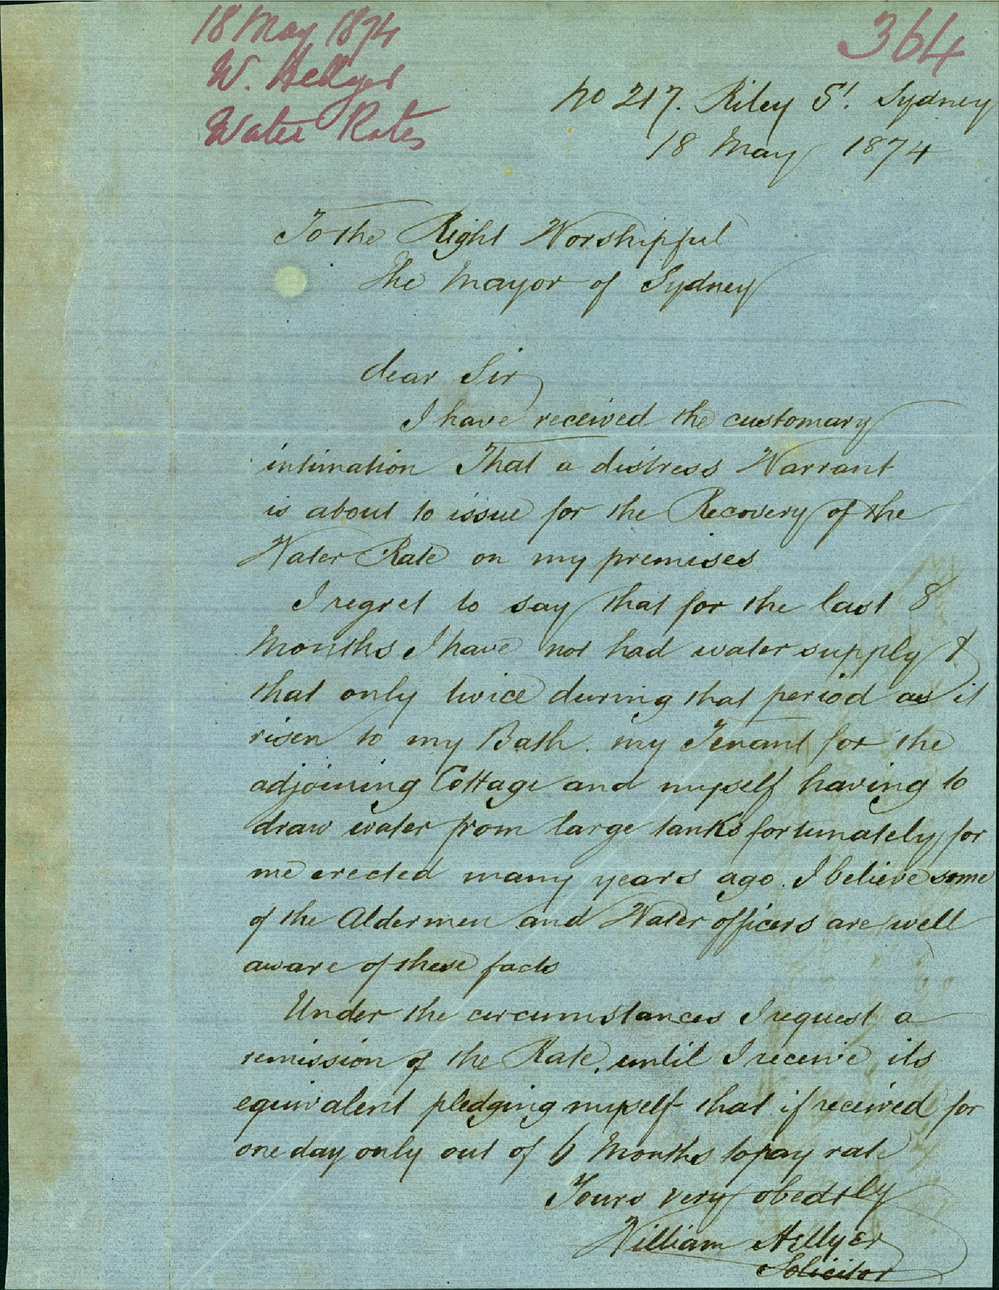 18 May 1874
W. Hellyer
Water Rates
364
No 217. Riley St. Sydney
18 May 1874
To the Right Worshipful
The Mayor of Sydney
dear Sir
I have received the customary
intimation That a distress Warrant
is about to issue for the Recovery of the
Water Rate on my premises
I regret to say that for the last 8
Months I have not had water supply &
that only twice during that period as it
risen to my Bath. my Tenant for the
adjoining Cottage and myself having to
draw water from large tanks fortunately for
me erected many years ago. I believe some
of the Aldermen and Water officers are well
aware of these facts
Under the circumstances I request a
remission of the Rate, until I receive its
equivalent pledging myself that if received for
one day only out of 6 Months to pay rate
Yours very obedtly
William Hellyer
Solicitor